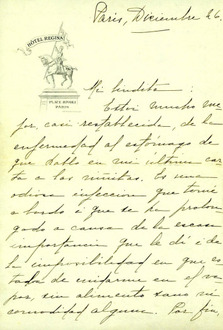 Paris, Diciembre 26.
HÔTEL REGINA
PLACE RIVOLI
PARIS
Mi lindeta:
Estoy mucho me-
jor, casi restablecido, de la
enfermedad al estómago de
que hablo en mi última car-
ta a las niñitas. Es una
odiosa infección que tomé
a bordo i que se ha prolon-
gado a causa de la escasa
importancia que le di i de
la imposibilidad en que es-
taba de cuidarme en el va-
por, sin alimento sano ni
comodidad alguna. Por